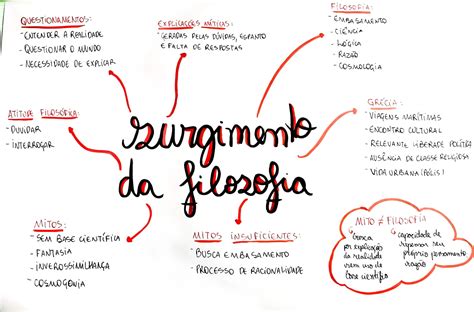 QUESTIONAMENTOS:
- ENTENDER A REALIDADE
- QUESTIONAR O MUNDO
- NECESSIDADE DE EXPLICAR
EXPLICAÇÕES MÍTICAS:
- GERADAS PELAS DÚVIDAS, ESPANTO
E FALTA DE RESPOSTAS
FILOSOFIA:
- EMBASAMENTO
- CIÊNCIA
- LÓGICA
- RAZÃO
- COSMOLOGIA
ATITUDE FILOSÓFICA:
- DUVIDAR
- INTERROGAR
surgimento
da filosofia
GRÉCIA:
- VIAGENS MARÍTIMAS
- ENCONTRO CULTURAL
- RELEVANTE LIBERDADE POLÍTICA
- AUSÊNCIA DE CLASSE RELIGIOSA
- VIDA URBANA (PÓLIS)
MITOS:
- SEM BASE CIENTÍFICA
- FANTASIA
- INVEROSSIMILHANÇA
- COSMOGONIA
MITOS INSUFICIENTES:
- BUSCA EMBASAMENTO
- PROCESSO DE RACIONALIDADE
MITO ≠ FILOSOFIA
Crença
por explicação
da realidade
sem uso de
base científica
capacidade de
repensar seu
próprio pensamento
razão